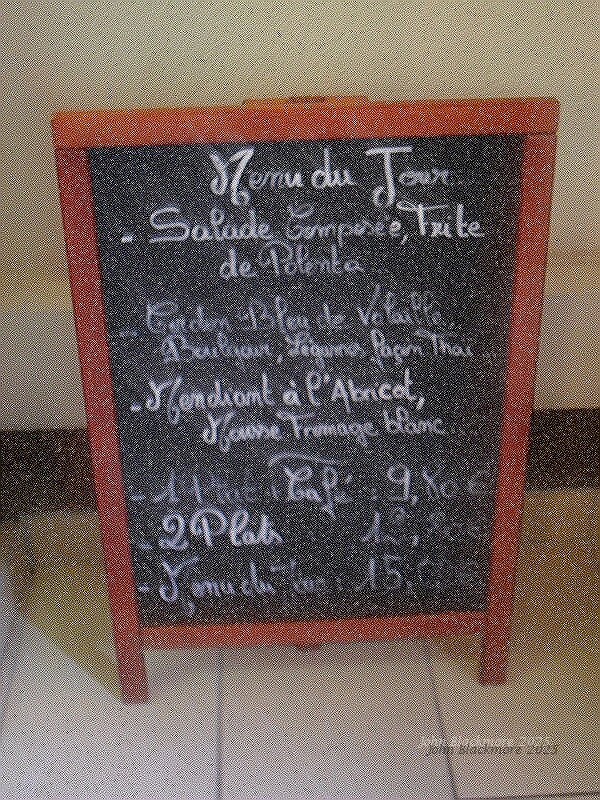 Menu du Jour
- Salade Composée, Frite
de Polenta
- Cordon Bleu de Volaille
Boulgour, Légumes façon Thaï
- Mendiant à l'Abricot,
Mousse Fromage blanc
- 1 Plat + Café : 9,80 €
- 2 Plats 12,80€
- Menu du Jour : 15,
John Blackmore 2023